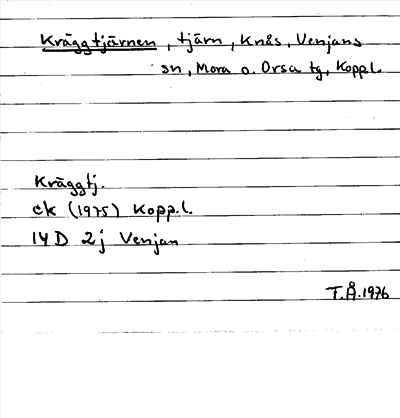 Kräggtjärnen, tjärn, Knås, Venjans
sn, Mora o. Orsa tg, Koppl.
Kräggtj.
ek (1975) Kopp.l.
14D 2j Venjan
T.Å.1976